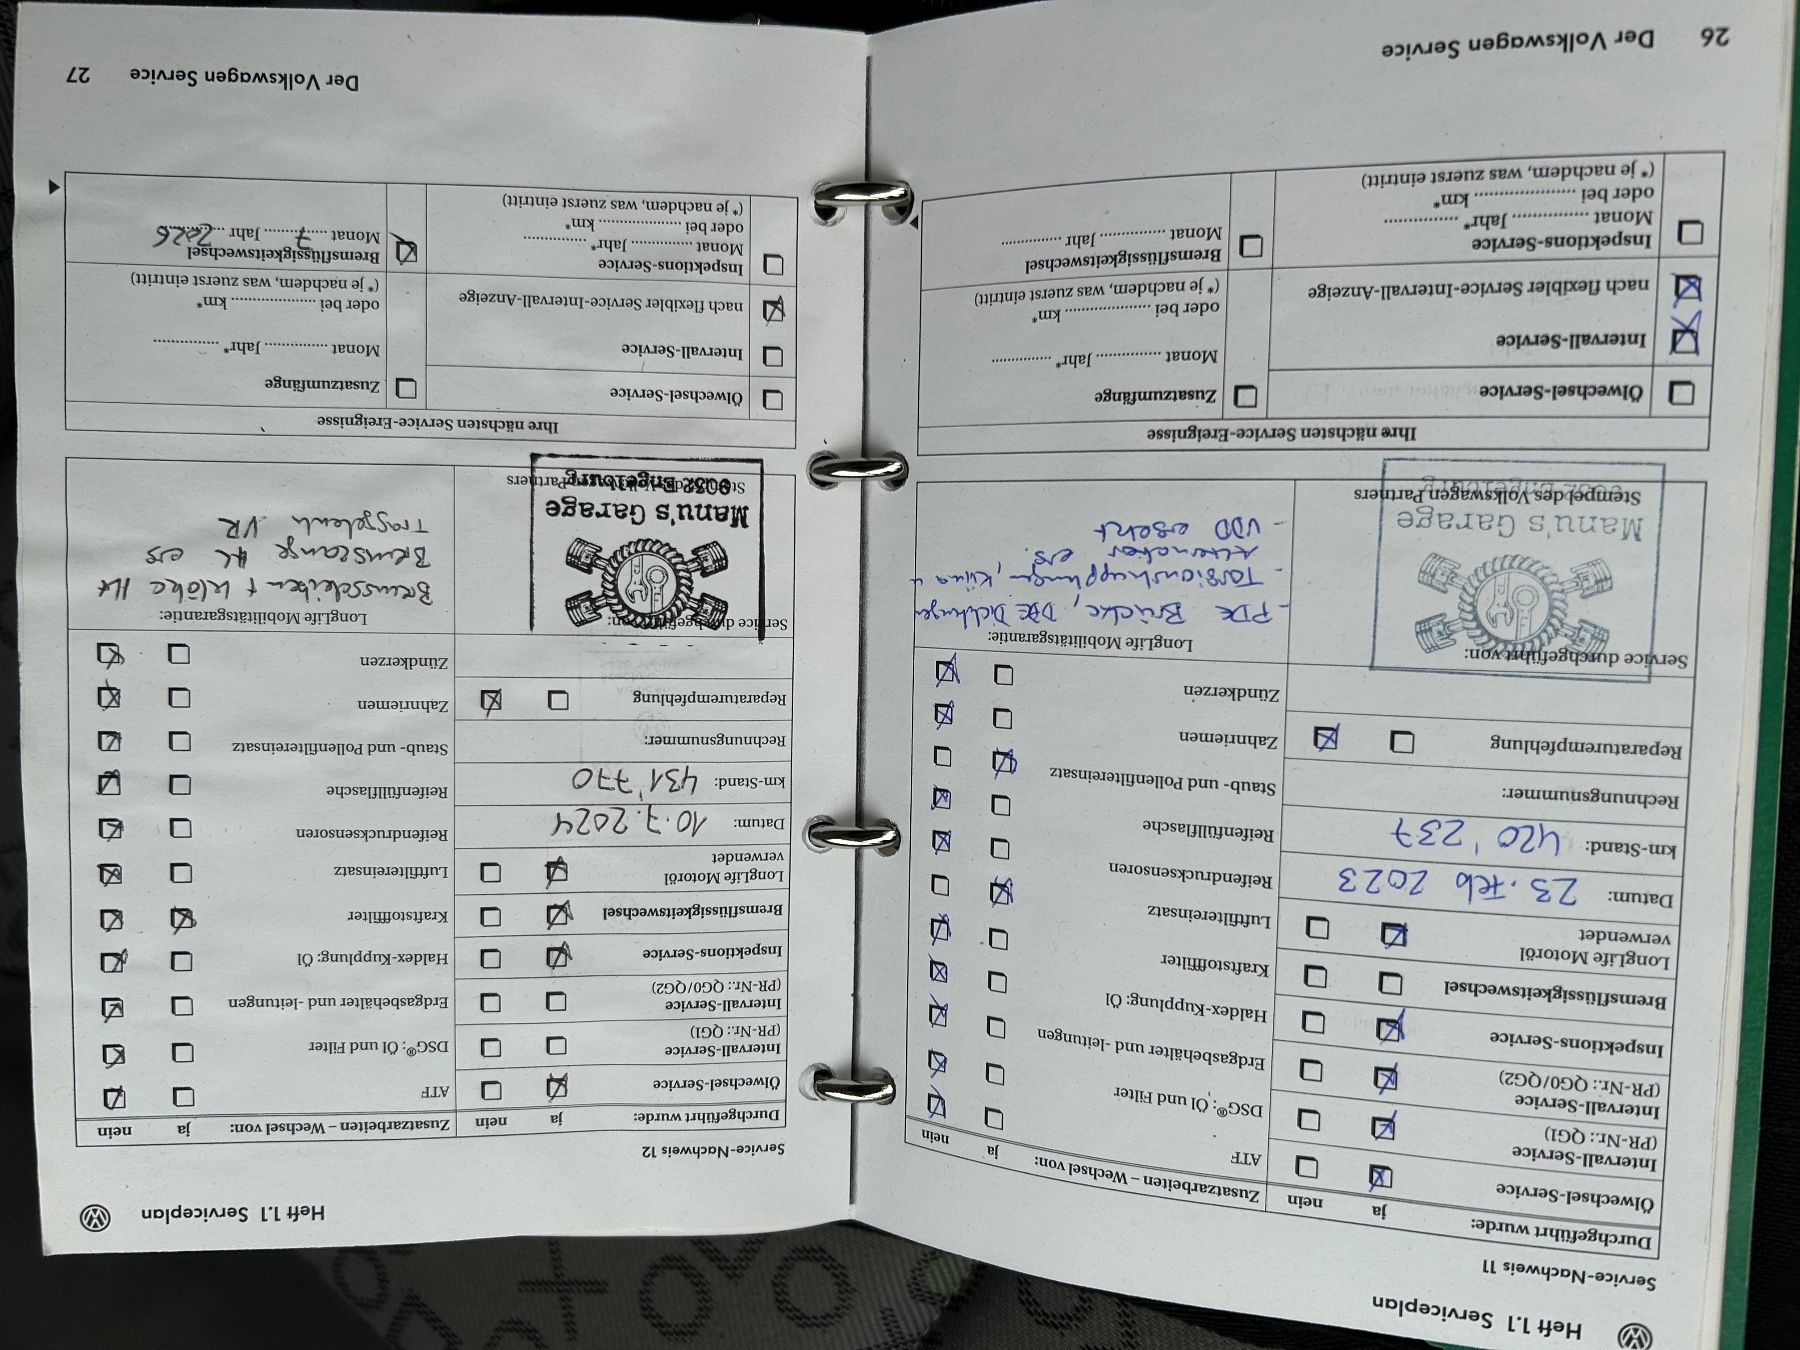 Heft 1.1 Serviceplan
Service-Nachweis 11
Durchgeführt wurde: ja nein
Ölwechsel-Service
Intervall-Service
(PR-Nr.: QG1)
Intervall-Service
(PR-Nr.: QG0/QG2)
Inspektions-Service
Bremsflüssigkeitswechsel
LongLife Motoröl
verwendet
Datum: 23. Feb 2023
km-Stand: 420'237
Rechnungsnummer:
Reparaturempfehlung
Service durchgeführt von:
Manu's Garage
9032 Engelburg
Stempel des Volkswagen Partners
Zusatzarbeiten – Wechsel von: ja nein
ATF
DSG®: Öl und Filter
Erdgasbehälter und -leitungen
Haldex-Kupplung: Öl
Kraftstofffilter
Luftfiltereinsatz
Reifendrucksensoren
Reifenfüllflasche
Staub- und Pollenfiltereinsatz
Zahnriemen
Zündkerzen
LongLife Mobilitätsgarantie:
- PDE Brücke, PDE Dichtungen
- Torsionskupplungen, Klima u
Alternator ers.
- VDD ersetzt
Ihre nächsten Service-Ereignisse
Ölwechsel-Service
Intervall-Service
nach flexibler Service-Intervall-Anzeige
Inspektions-Service
Monat ............... Jahr* ...............
oder bei .................... km*
(* je nachdem, was zuerst eintritt)
Zusatzumfänge
Monat ............... Jahr* ...............
oder bei .................... km*
(* je nachdem, was zuerst eintritt)
Bremsflüssigkeitswechsel
Monat ............... Jahr ...............
26 Der Volkswagen Service
Heft 1.1 Serviceplan
Service-Nachweis 12
Durchgeführt wurde: ja nein
Ölwechsel-Service
Intervall-Service
(PR-Nr.: QG1)
Intervall-Service
(PR-Nr.: QG0/QG2)
Inspektions-Service
Bremsflüssigkeitswechsel
LongLife Motoröl
verwendet
Datum: 10.7.2024
km-Stand: 431'770
Rechnungsnummer:
Reparaturempfehlung
Service durchgeführt von:
Manu's Garage
9032 Engelburg
Stempel des Volkswagen Partners
Zusatzarbeiten – Wechsel von: ja nein
ATF
DSG®: Öl und Filter
Erdgasbehälter und -leitungen
Haldex-Kupplung: Öl
Kraftstofffilter
Luftfiltereinsatz
Reifendrucksensoren
Reifenfüllflasche
Staub- und Pollenfiltereinsatz
Zahnriemen
Zündkerzen
LongLife Mobilitätsgarantie:
Bremsscheiben + Klötze HA
Bremszange HL ers
Traggelenk VR
Ihre nächsten Service-Ereignisse
Ölwechsel-Service
Intervall-Service
nach flexibler Service-Intervall-Anzeige
Inspektions-Service
Monat ............... Jahr* ...............
oder bei .................... km*
(* je nachdem, was zuerst eintritt)
Zusatzumfänge
Monat ............... Jahr* ...............
oder bei .................... km*
(* je nachdem, was zuerst eintritt)
Bremsflüssigkeitswechsel
Monat 7 Jahr 2026
Der Volkswagen Service 27